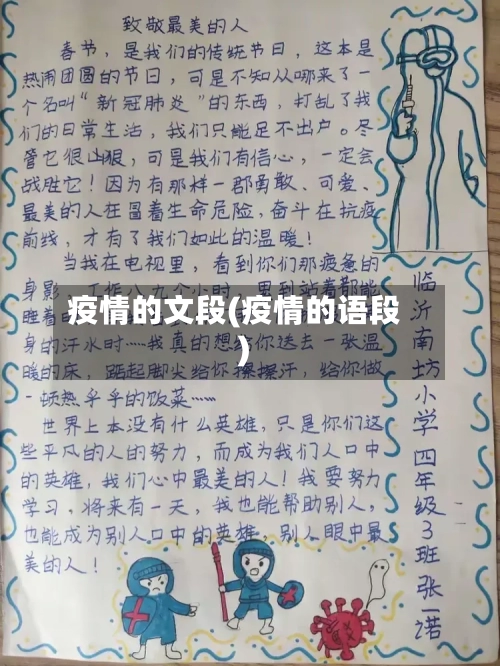 致敬最美的人
春节，是我们的传统节日，这本是
热闹团圆的节日，可是不知从哪来了一
个名叫“新冠肺炎”的东西，打乱了我
们的日常生活，我们只能足不出户。尽
管它很凶狠，可是我们有信心，一定会
战胜它！因为有那样一群勇敢、可爱、
最美的人在冒着生命危险，奋斗在抗疫
前线，才有了我们如此的温暖！
当我在电视里，看到你们那疲惫的
身影，工作八九个小时，累到站着都能
睡着
疫情的文段(疫情的语段
)
身的汗水时……我真的想给你送去一张温
暖的床，踮起脚尖给你擦擦汗，给你做
一顿热乎乎的饭菜……
世界上本没有什么英雄，只是你们这
些平凡的人的努力，而成为我们人口中
的英雄，我们心中最美的人！我要努力
学习，将来有一天，我也能帮助别人，
也能成为别人口中的英雄，别人眼中最
美的人！
临沂南坊小学四年级3班张一诺